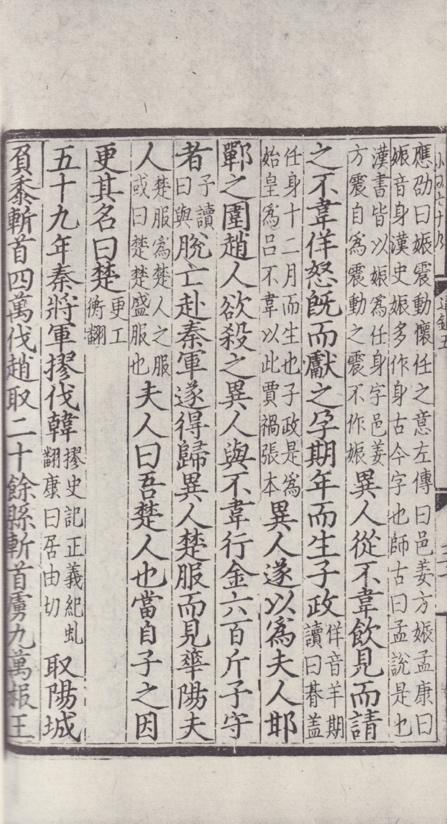 應劭曰娠震動懷任之意左傳曰邑姜方娠孟康曰
娠音身漢史娠多作身古今字也師古曰孟說是也
漢書皆以娠為任身字邑姜方震自為震動之震不作娠異人從不韋飲見而請
之不韋佯怒旣而獻之孕期年而生子政佯音羊期讀曰朞蓋
任身十二月而生也子政是為始皇為呂不韋以此賈禍張本異人遂以為夫人邯
鄲之圍趙人欲殺之異人與不韋行金六百斤予守
者予讀曰與脫亡赴秦軍遂得歸異人楚服而見華陽夫
人楚服為楚人之服或曰楚楚盛服也夫人曰吾楚人也當自子之因
更其名曰楚更工衡翻
五十九年秦將軍摎伐韓摎史記正義紀虬翻康曰居由切取陽城
負黍斬首四萬伐趙取二十餘縣斬首虜九萬赧王